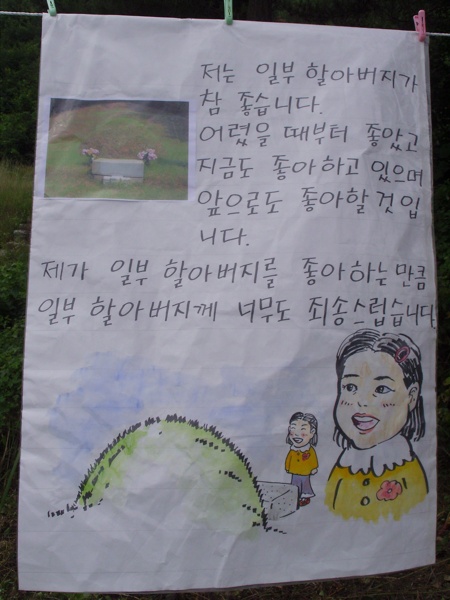 저는 일부 할아버지가
참 좋습니다.
어렸을 때부터 좋았고
지금도 좋아하고 있으며
앞으로도 좋아할 것 입
니다.
제가 일부 할아버지를 좋아하는 만큼
일부 할아버지께 너무도 죄송스럽습니다.